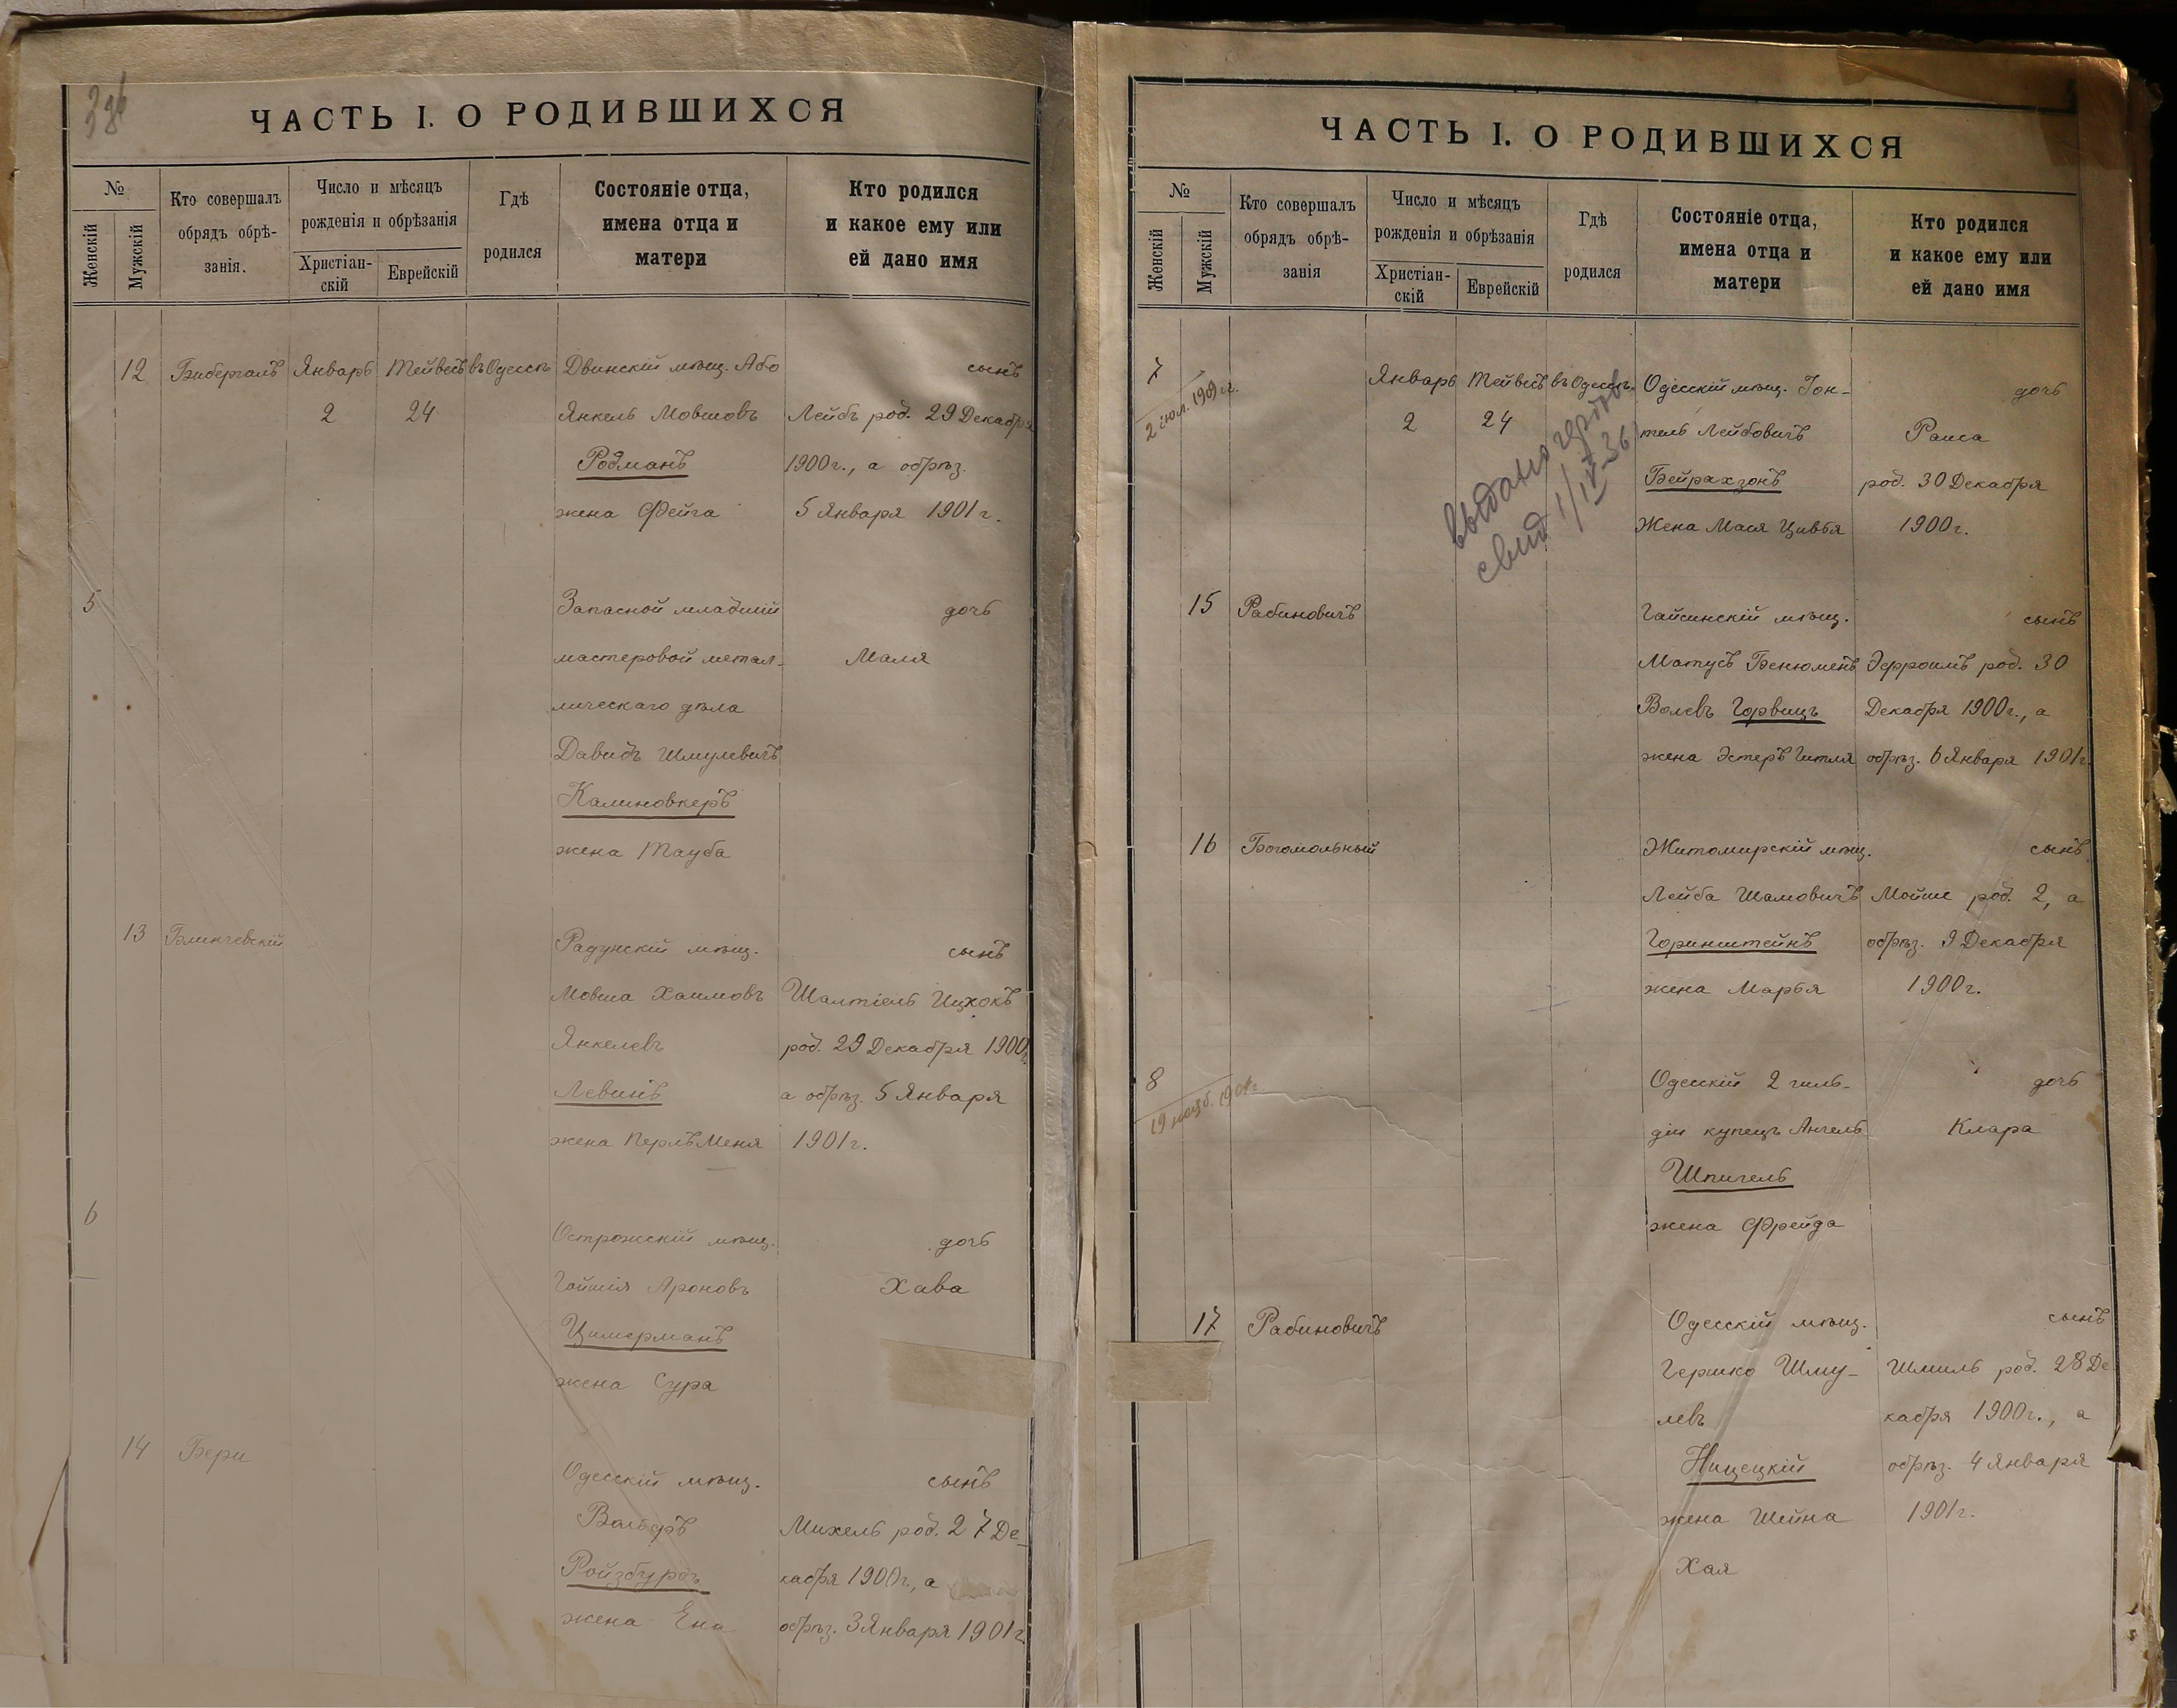 ЧАСТЬ I. О РОДИВШИХСЯ
№
Женскій
Мужскій
Кто совершалъ
обрядъ обрѣ-
занія.
Число и мѣсяцъ
рожденія и обрѣзанія
Христіан-
скій
Еврейскій
Гдѣ
родился
Состояніе отца,
имена отца и
матери
Кто родился
и какое ему или
ей дано имя
12 Бибергалъ Январь Тейвесъ въ Одессѣ Двинскій мѣщ. Або сынъ
2 24 Янкель Мовшовъ Лейбъ род. 29 Декабря
Родманъ 1900 г., а обрѣз.
жена Фейга 5 Января 1901 г.
5 Запасной младшій дочь
мастеровой метал- Маля
лическаго дѣла
Давидъ Шмулевичъ
Калиновкеръ
жена Тауба
13 Блинчевскій Радунскій мѣщ. сынъ
Мовша Хаимовъ Шалтіель Ицхокъ
Янкелевъ род. 29 Декабря 1900 г.
Левинъ а обрѣз. 5 Января
жена Перль Меня 1901 г.
6 Острожскій мѣщ. дочь
Гойшія Ароновъ Хава
Цимерманъ
жена Сура
14 Бери Одесскій мѣщ. сынъ
Вольфъ Михель род. 27 Де-
Ройзбурдъ кабря 1900 г., а
жена Ена обрѣз. 3 Января 1901 г.
ЧАСТЬ I. О РОДИВШИХСЯ
№
Женскій
Мужскій
Кто совершалъ
обрядъ обрѣ-
занія
Число и мѣсяцъ
рожденія и обрѣзанія
Христіан-
скій
Еврейскій
Гдѣ
родился
Состояніе отца,
имена отца и
матери
Кто родился
и какое ему или
ей дано имя
7 Январь Тейвесъ въ Одессѣ Одесскій мѣщ. Іон- дочь
2 іюл. 1909 г. 2 24 тель Лейбовичъ Раиса
Бейрахзонъ род. 30 Декабря
Жена Мася Цивья 1900 г.
выдано
свид 1/IV-36
15 Рабиновичъ Гайсинскій мѣщ. сынъ
Матусъ Бенюменъ Эфроимъ род. 30
Волевъ Горвицъ Декабря 1900 г., а
жена Эстеръ Гитля обрѣз. 6 Января 1901 г.
16 Богомольный Житомирскій мѣщ. сынъ
Лейба Шамовичъ Мойше род. 2, а
Горинштейнъ обрѣз. 9 Декабря
жена Марья 1900 г.
8 Одесскій 2 гиль- дочь
діи купецъ Ангель Клара
Шпигель
жена Фрейда
17 Рабиновичъ Одесскій мѣщ. сынъ
Гершко Шму- Шмиль род. 28 Де
левъ кабря 1900 г., а
Ницецкій обрѣз. 4 Января
жена Шейна 1901 г.
Хая